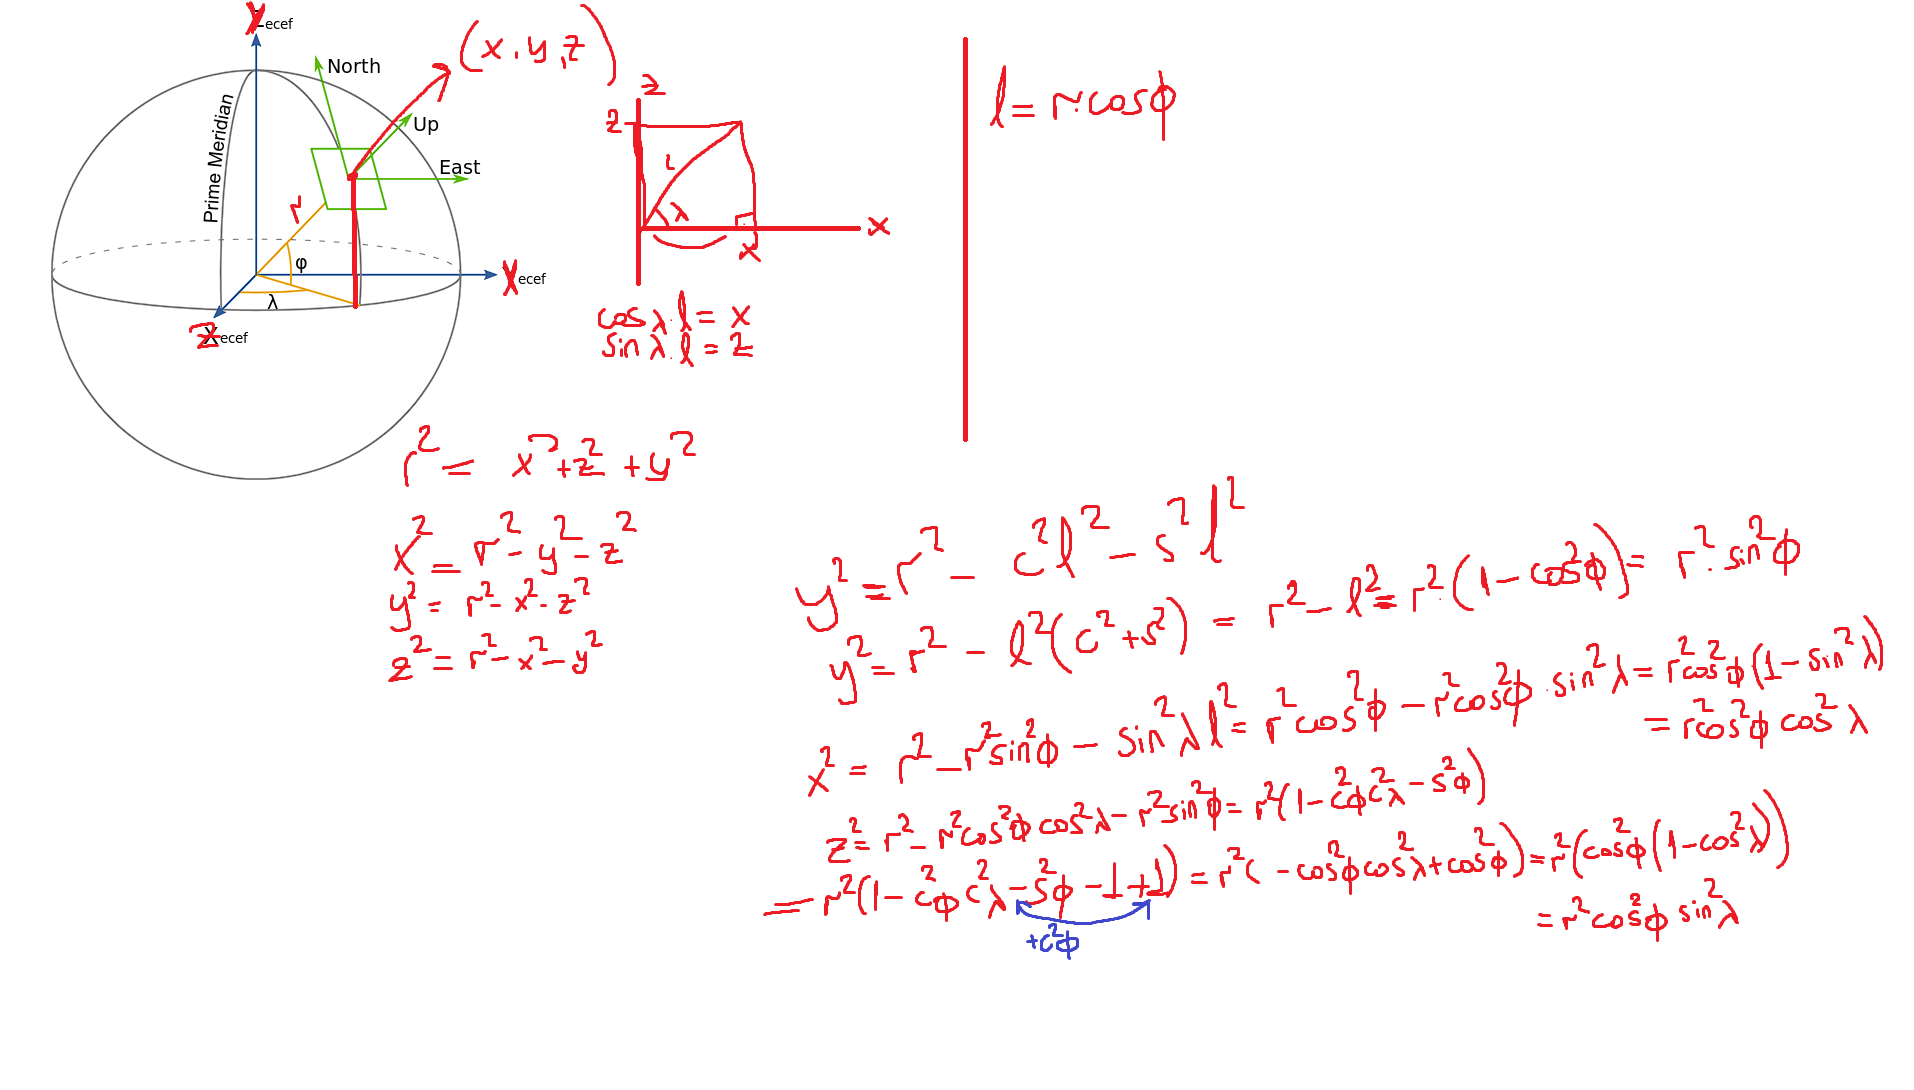 Y ecef
(x, y, z)
North
Up
East
Prime Meridian
r
φ
λ
X ecef
Z ecef
z
z
L
λ
x
x
cosλ.l = x
sinλ.l = z
l = r.cosϕ
r² = x²+z²+y²
x² = r²-y²-z²
y² = r²-x²-z²
z² = r²-x²-y²
y² = r² - c²l² - s²l²
y² = r² - l²(c²+s²) = r² - l² = r².(1-cos²ϕ) = r².sin²ϕ
x² = r² - r²sin²ϕ - sin²λl² = r²cos²ϕ - r²cos²ϕ.sin²λ = r²cos²ϕ(1-sin²λ)
= r²cos²ϕ cos²λ
z² = r² - r²cos²ϕ cos²λ - r²sin²ϕ = r²(1-c²ϕc²λ - s²ϕ)
= r²(1-c²ϕc²λ - s²ϕ -1+1) = r²(-cos²ϕcos²λ+cos²ϕ) = r²(cos²ϕ(1-cos²λ))
+c²ϕ
= r²cos²ϕ sin²λ